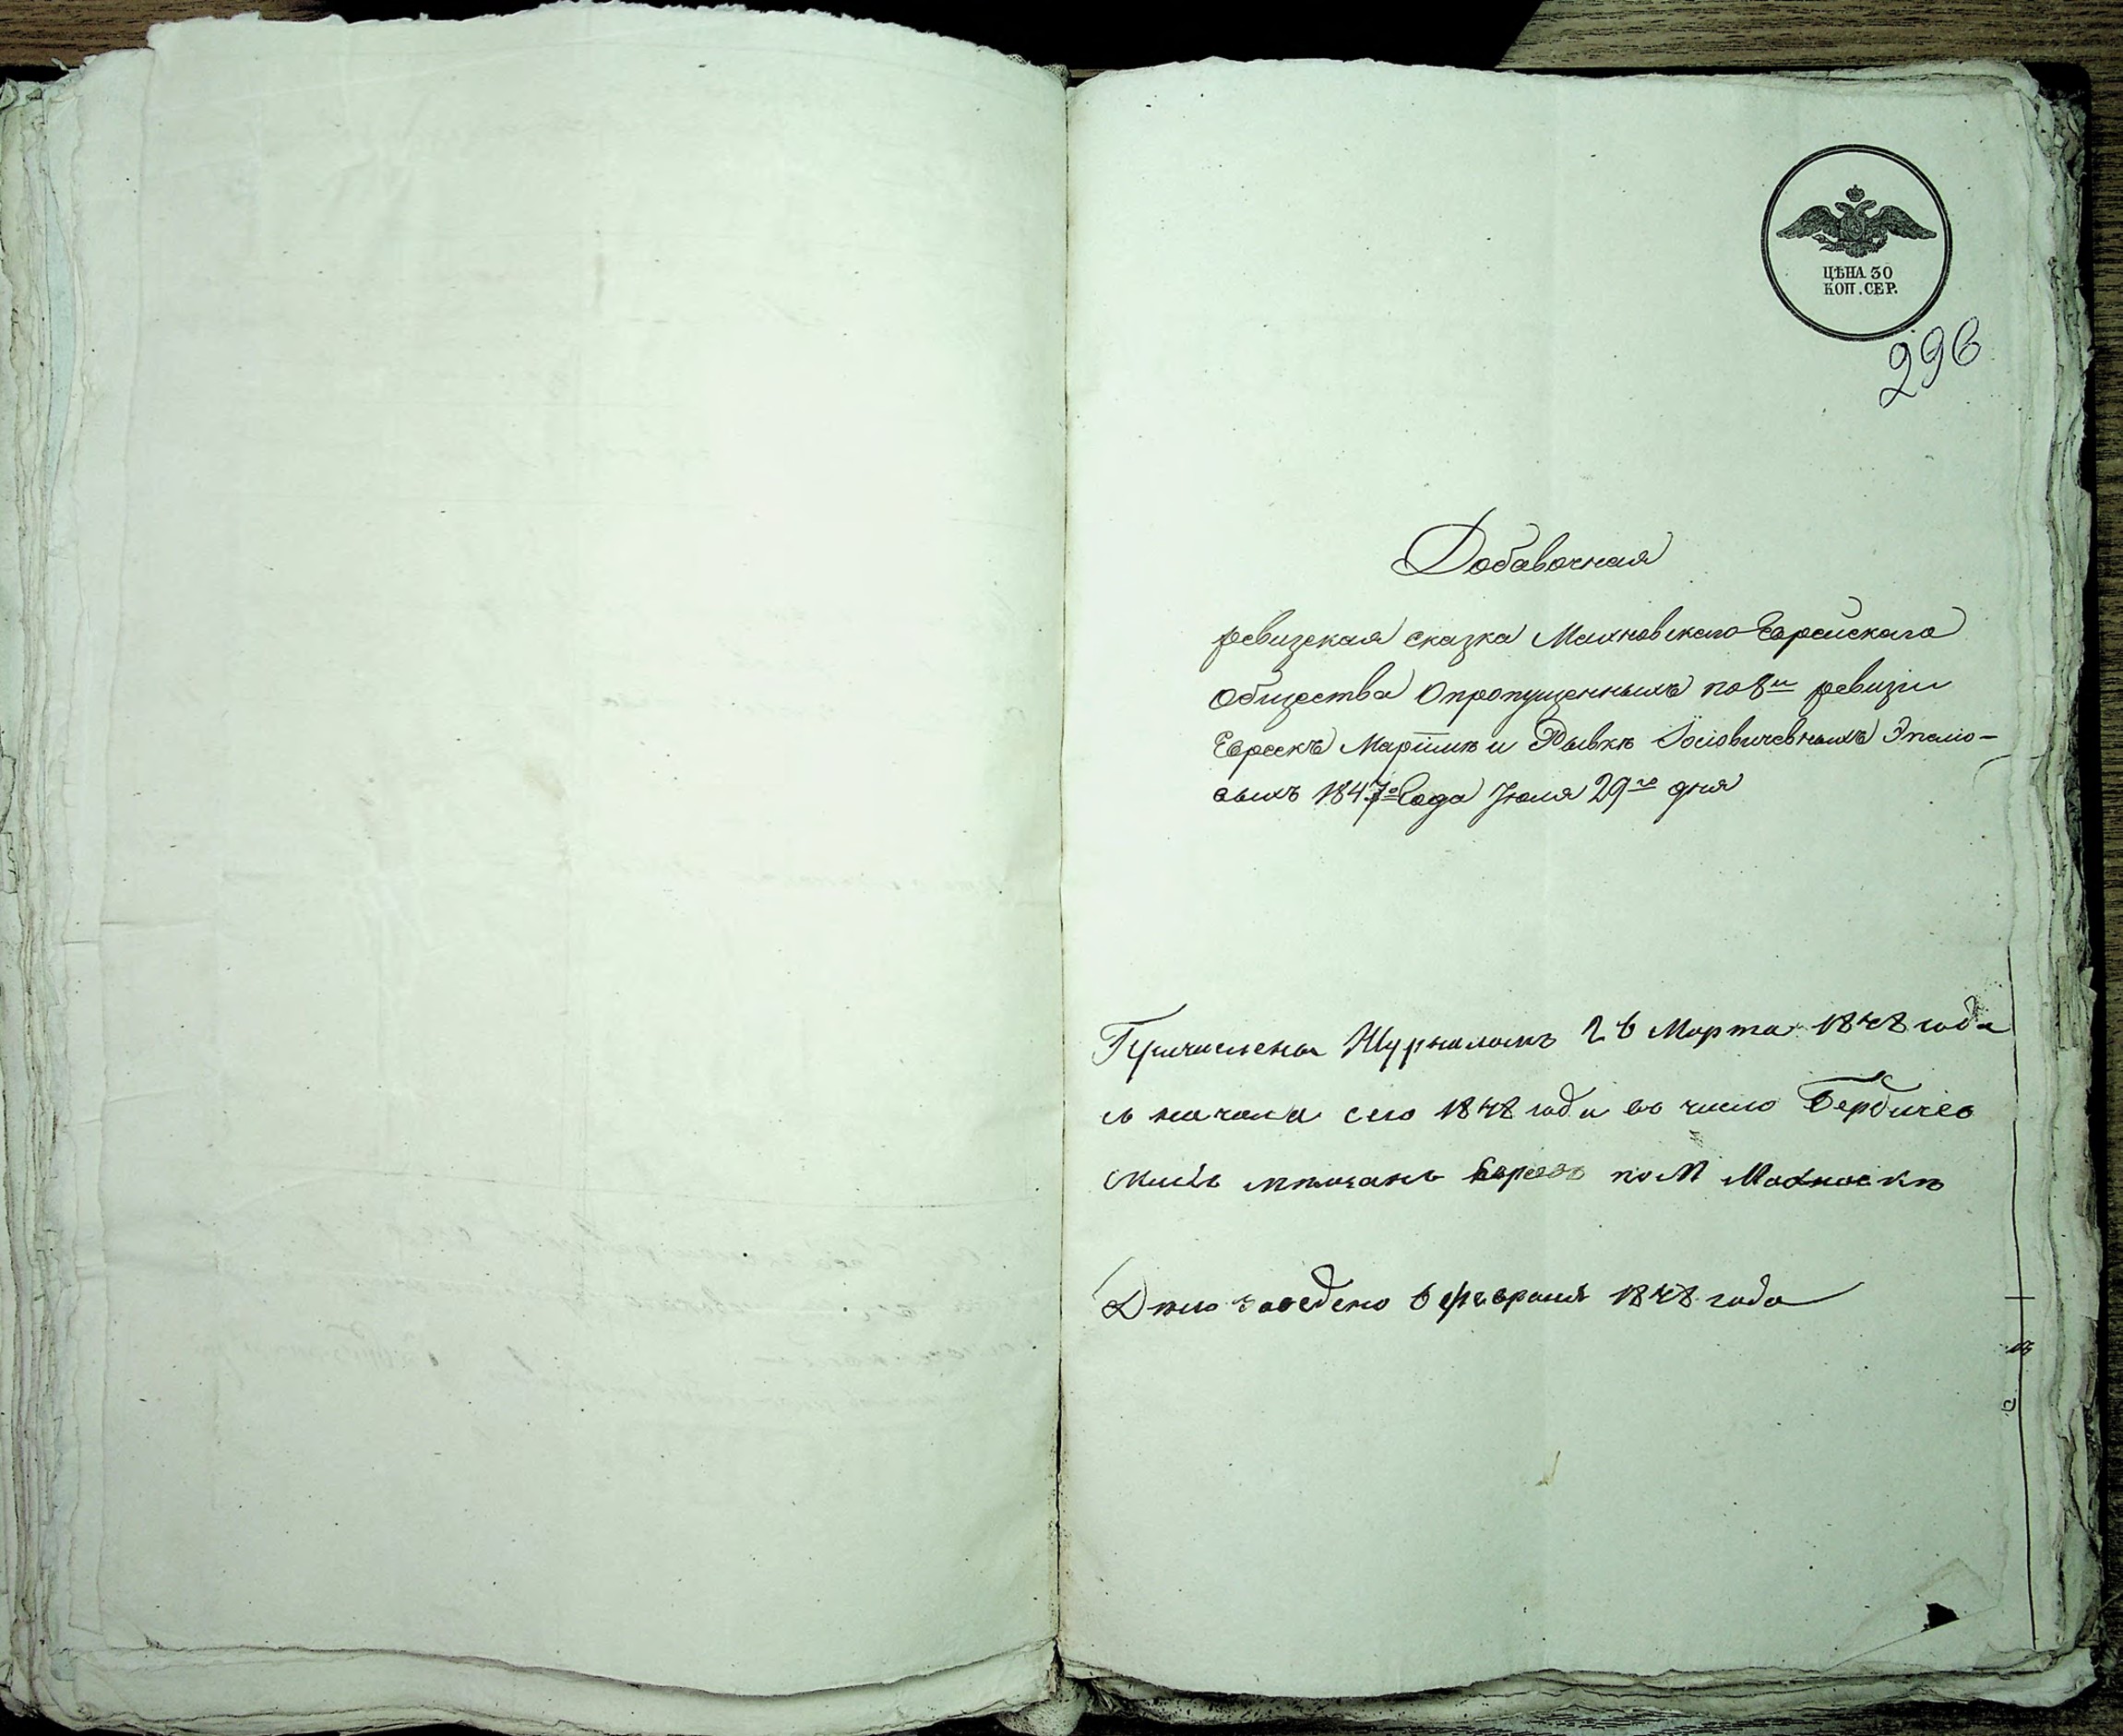 ЦѢНА 30
КОП. СЕР.
296
Добавочная
ревизская сказка Махновского Еврейскаго
Общества Опропущенныхъ по 8й ревизіи
Евреекъ Маріимѣ и Рывкѣ Іосіовичевныхъ
выхъ 1847го Года Іюля 29го дня
Причислены Журналомъ 26 Марта 1848 года
съ начала сего 1848 года въ число Бердичев
скихъ мѣщанъ Евреевъ по М Махновкѣ
Дѣло заведено 6 февраля 1848 года